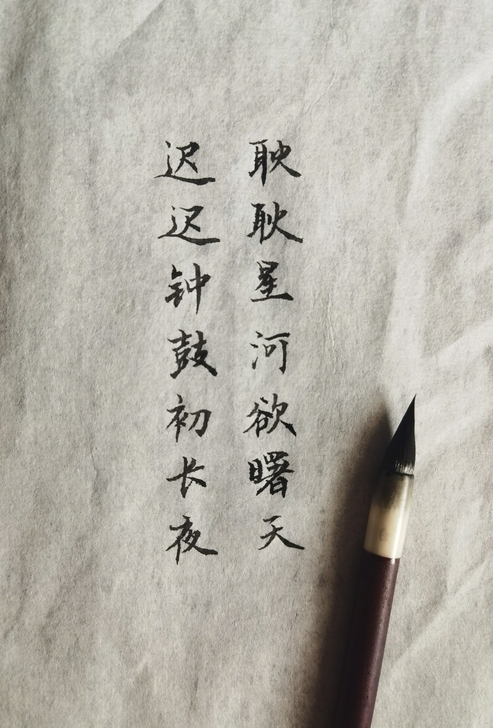 迟迟钟鼓初长夜
耿耿星河欲曙天